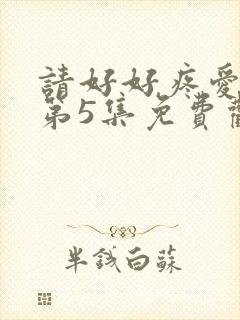 請好好疼愛
第5集免費
半錢白蘇